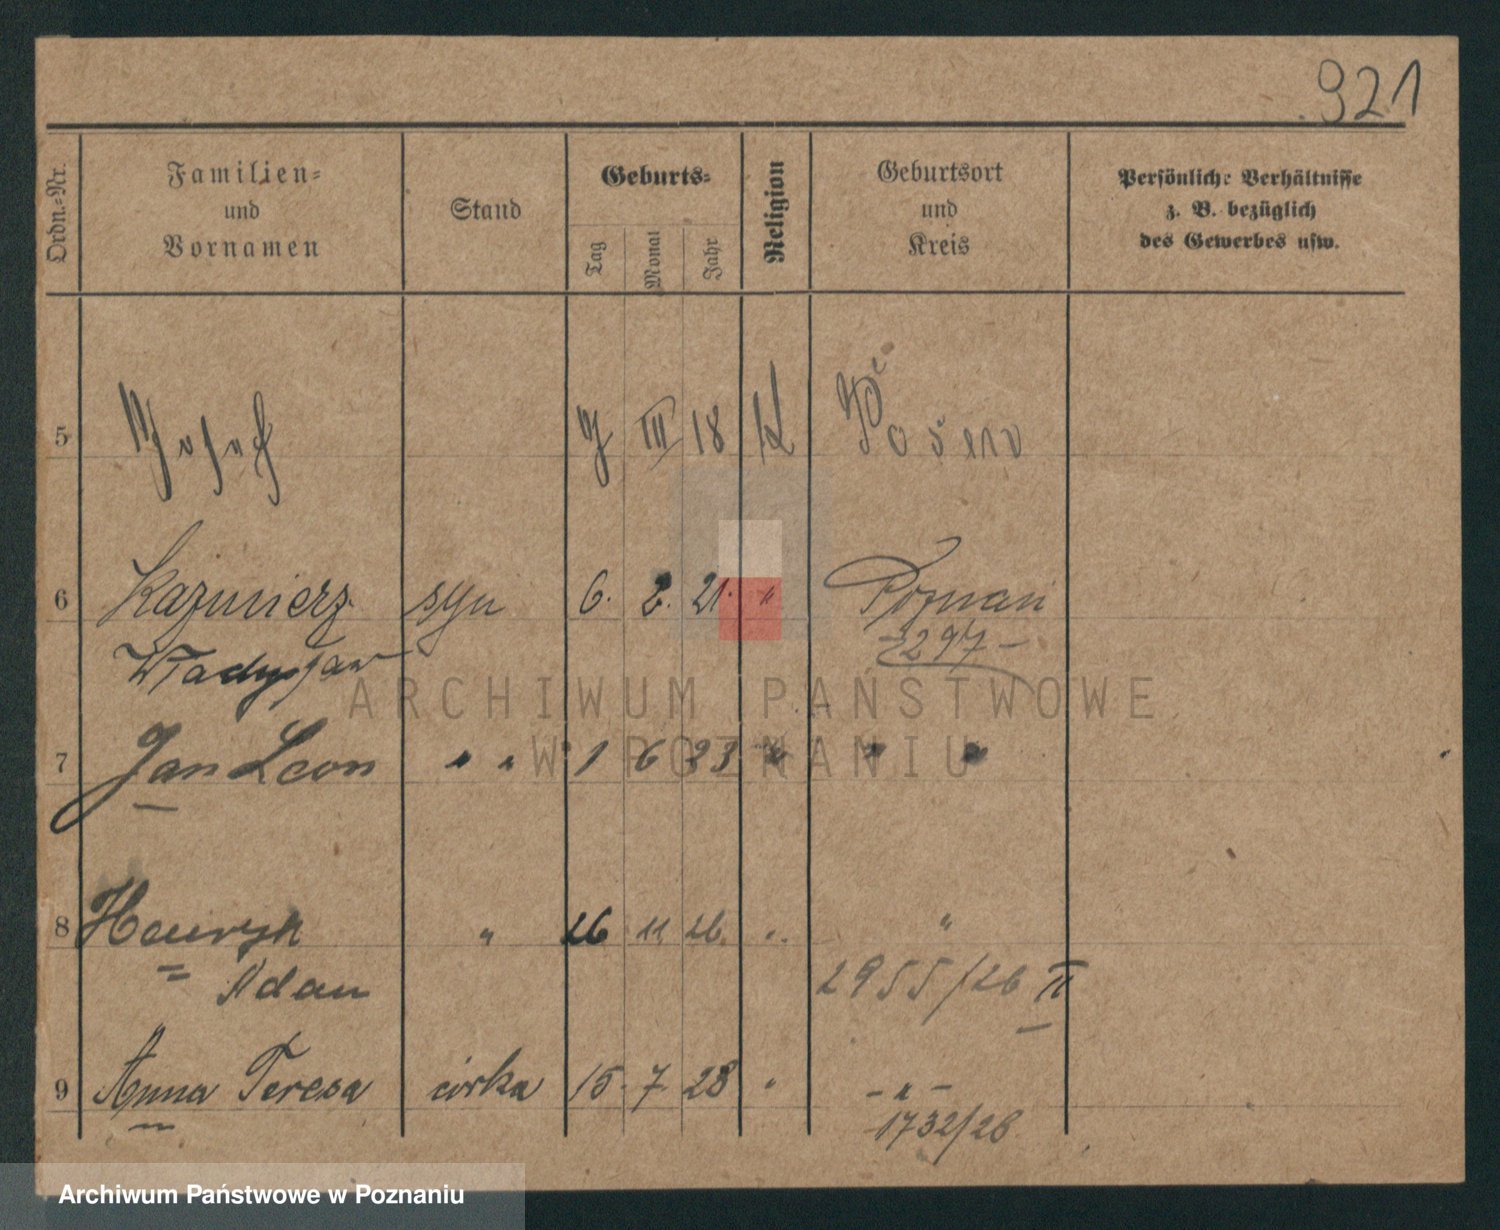 921
Ordn.-Nr. Familien- und Vornamen Stand Geburts- Tag Monat Jahr Religion Geburtsort und Kreis Persönliche Verhältnisse z. B. bezüglich des Gewerbes usw.
5 Josef III 18 K
6 Kazimierz syn 6. 2. 21. " Poznań
2297 –
Władysław
7 Jan Leon " " 1 6 23 " " "
8 Henryk " 26 11 26 " "
Adam 2955/26 II
9 Anna Teresa córka 15. 7. 28 " – " –
1732/28
ARCHIWUM PAŃSTWOWE
W POZNANIU
Archiwum Państwowe w Poznaniu